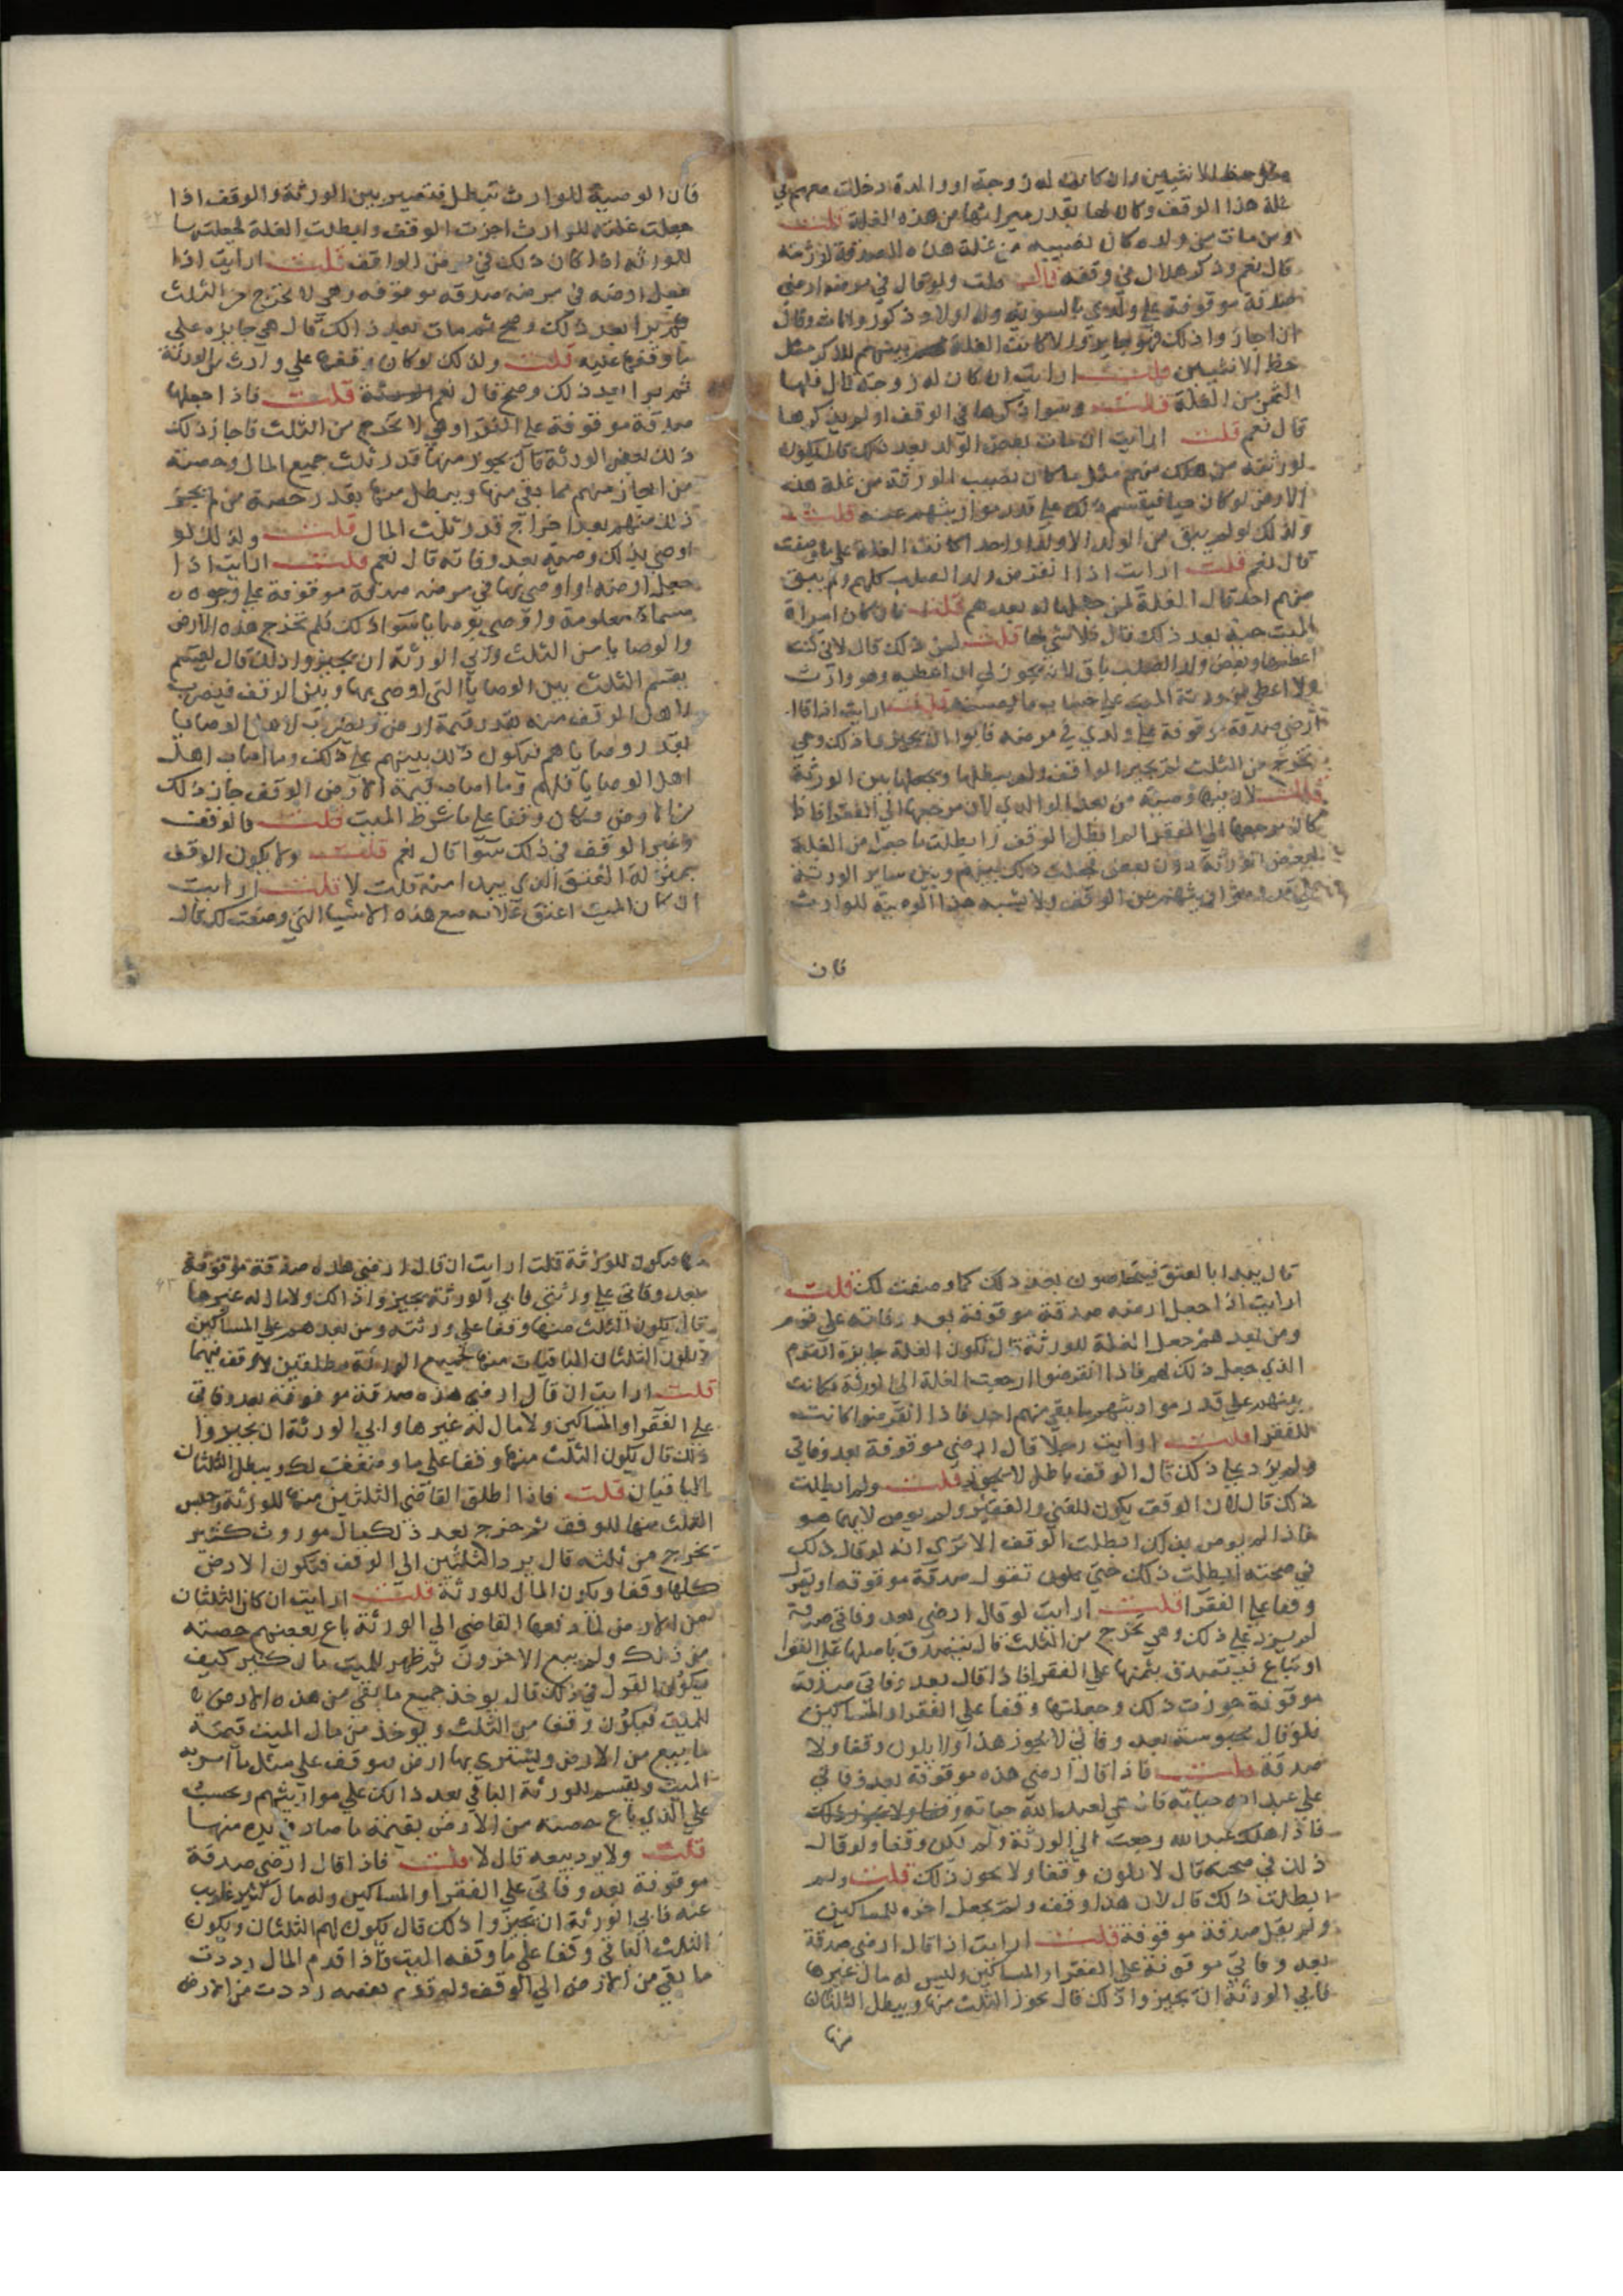 مثل حظ الانثيين وان كانت له زوجة او والدة دخلت معهم في
غلة هذا الوقف وكان لها بقدر ميراثها من هذه الغلة قلت
ومن مات من ولده كان نصيبه من غلة هذه الصدقة لورثته
قال نعم وذكر هلال في وقفه قلت ولو قال في مرضه ارضي
صدقة موقوفة علي ولدي بالسوية وله اولاد ذكور واناث وقال
ان اجازوا ذلك فهو جايز والا كانت الغلة بينهم للذكر مثل
حظ الانثيين قلت ارايت ان كان له زوجة قال فلها
الثمن من الغلة قلت وسوا ذكرها في الوقف او لم يذكرها
قال نعم قلت ارايت ان مات بعض الولد بعد ذلك قال يكون
لورثته من هلك منهم مثل ما كان نصيب المورثة من غلة هذه
الارض لو كان حيا فيقسم ذلك علي قدر مواريثهم عنه قلت
وكذلك لو لم يبق من الولد الا ولد واحد كانت الغلة علي ما وصفت
قال نعم قلت ارايت اذا انقرض ولد الصلب كلهم ولم يبق
منهم احد قال الغلة لمن جعلها له بعدهم قلت فان كان امراة
الميت حية بعد ذلك قال فلا شي لها قلت لمن ذلك قال لاني كنت
اعطيها وبعض ولد الصلب باق لانه لا يجوز لي ان اعطيه وهو وارث
ولا اعطي بقية ورثة الميت علي حساب ما يصيبهم قلت ارايت اذا قال
ارضي صدقة موقوفة علي ولدي في مرضه فابوا ان يجيزوا ذلك وهي
تخرج من الثلث لم تجيز الوقف ولم يبطلها ويجعلها بين الورثة
قلت لان فيها وصية من بعد الوالدي لان مرجعها الي الفقرا فاذا
كان مرجعها الي الفقرا لم ابطل الوقف وابطلت ما جعل من الغلة
لبعض الورثة دون بعض فجعلت ذلك بينهم وبين ساير الورثة
علي قدر مواريثهم من الوقف ولا يشبه هذا الوصية للوارث
فان
فان الوصية للوارث تبطل فتصير بين الورثة والوقف اذا
جعلت غلته للوارث اجزت الوقف وابطلت الغلة فجعلتها
للورثة اذا كان ذلك في مرض الواقف قلت ارايت اذا
جعل ارضه في مرضه صدقة موقوفة وهي لا تخرج من الثلث
ثم برا بعد ذلك وصح ثم مات بعد ذالك قال هي جايزه علي
ما وقفها عليه قلت وكذلك لو كان وقفها علي وارث من الورثة
ثم برا بعد ذلك وصح قال نعم قلت فاذا جعلها
صدقة موقوفة علي الفقرا وهي لا تخرج من الثلث فاجاز ذلك
ذلك بعض الورثة قال يجوز منها قدر ثلث جميع المال وحصة
من اجاز منهم مما بقي منها ويبطل منها بقدر حصة من لم يجز
ذلك منهم بعد اخراج قدر ثلث المال قلت وكذلك لو
اوصي بذلك وصية بعد وفاته قال نعم قلت ارايت اذا
جعل ارضه او اوصي بها في مرضه صدقة موقوفة علي وجوه
مسماة معلومة واوصي بوصايا سوا ذلك فلم تخرج هذه الارض
والوصايا من الثلث وابي الورثة ان يجيزوا ذلك قال يقسم
يقسم الثلث بين الوصايا التي اوصي بها وبين الوقف فيضرب
لاهل الوقف منه بقدر قيمة الارض ويضرب لاهل الوصايا
بقدر وصاياهم فيكون ذلك بينهم علي ذلك وما اصاب اهل
اهل الوصايا فلهم وما اصاب قيمة الارض الوقف جاز ذلك
من الارض وكان وقفا علي ما شرط الميت قلت فالوقف
وغير الوقف في ذلك سوا قال نعم قلت ولا يكون الوقف
بمنزلة العتق الذي يبدا منه قلت لا قلت ارايت
ان كان الميت اعتق غلامه مع هذه الاشيا التي وصفت لك قال
قال يبدا بالعتق فيتحاصون بعد ذلك كما وصفت لك قلت
ارايت اذا جعل ارضه صدقة موقوفة بعد وفاته علي قوم
ومن بعدهم جعل الغلة للورثة قال تكون الغلة جايزة القوم
الذي جعل ذلك لهم فاذا انقرضوا رجعت الغلة الي الورثة فكانت
بينهم علي قدر مواريثهم ما بقي منهم احد فاذا انقرضوا كانت
للفقرا قلت ارايت رجلا قال ارضي موقوفة بعد وفاتي
ولم يزد علي ذلك قال الوقف باطل لا يجوز قلت ولم ابطلت
ذلك قال لان الوقف يكون للغني والفقير ولم يوص لايهما هو
فاذا لم يوص بذلك ابطلت الوقف الا تري انه لو قال ذلك
في صحته ابطلت ذلك حتي يكون تقول صدقة موقوفه او يقول
وقفا علي الفقرا قلت ارايت لو قال ارضي بعد وفاتي صدقة
لم يزد علي ذلك وهي تخرج من الثلث قال يتصدق باصلها علي الفقرا
او تباع فيتصدق بثمنها علي الفقرا فاذا قال بعد وفاتي صدقة
موقوفة جوزت ذلك وجعلتها وقفا علي الفقرا والمساكين
فلو قال محبوسة بعد وفاتي لا يجوز هذا ولا يكون وقفا ولا
صدقة قلت فاذا قال ارضي هذه موقوفة بعد وفاتي
علي عبد الله حياته فان هي لعبد الله حياته وقفا ولا يجوز ذلك
فاذا هلك عبد الله رجعت الي الورثة ولم تكن وقفا ولو قال
ذلك في صحته قال لا يكون وقفا ولا يجوز ذلك قلت ولم
ابطلت ذلك قال لان هذا وقف ولم يجعل اخره للمساكين
ولم يقل صدقة موقوفة قلت ارايت اذا قال ارضي صدقة
بعد وفاتي موقوفة علي الفقرا والمساكين وليس له مال غيرها
فابي الورثة ان يجيزوا ذلك قال يجوز الثلث منها ويبطل الثلثان
منها
منها فيكون للورثة قلت ارايت ان قال ارضي هذه صدقة موقوفة
بعد وفاتي علي ورثتي فابي الورثة يجيزوا ذالك ولا مال له غيرها
قال يكون الثلث منها وقفا علي ورثته ومن بعدهم علي المساكين
ويكون الثلثان الباقيان منها لجميع الورثة مطلقين لا وقف فيهما
قلت ارايت ان قال ارضي هذه صدقة موقوفة بعد وفاتي
علي الفقرا والمساكين ولا مال له غيرها وابي الورثة ان يجيزوا
ذلك قال يكون الثلث منها وقفا علي ما وصفت لك ويبطل الثلثان
الباقيان قلت فاذا اطلق القاضي الثلثين منها للورثة وحبس
الثلث منها للوقف ثم خرج بعد ذلك مال موروث كثير
تخرج من ثلثه قال يرد الثلثين الي الوقف فتكون الارض
كلها وقفا ويكون المال للورثة قلت ارايت ان كان الثلثان
من الارض لما دفعها القاضي الي الورثة باع بعضهم حصته
من ذلك ولم يبع الاخرون ثم ظهر للميت مال كثير كيف
يكون القول في ذلك قال يوخذ جميع ما بقي من هذه الارض
للميت فيكون وقفا من الثلث ويوخذ من مال الميت قيمة
ما بيع من الارض ويشتري بها ارض توقف علي مثل ما امر به
الميت ويقسم للورثة الباقي بعد ذالك علي مواريثهم ويحسب
علي الذي باع حصته من الارض بقيمة ما صار في يده منها
قلت ولا يرد بيعه قال لا قلت فاذا قال ارضي صدقة
موقوفة بعد وفاتي علي الفقرا والمساكين وله مال كثير غايب
عنه فابي الورثة ان يجيزوا ذلك قال يكون لهم الثلثان ويكون
الثلث الباقي وقفا علي ما وقفه الميت فاذا قدم المال رددت
ما بقي من الارض الي الوقف ولو قدم بعضه رددت من الارض